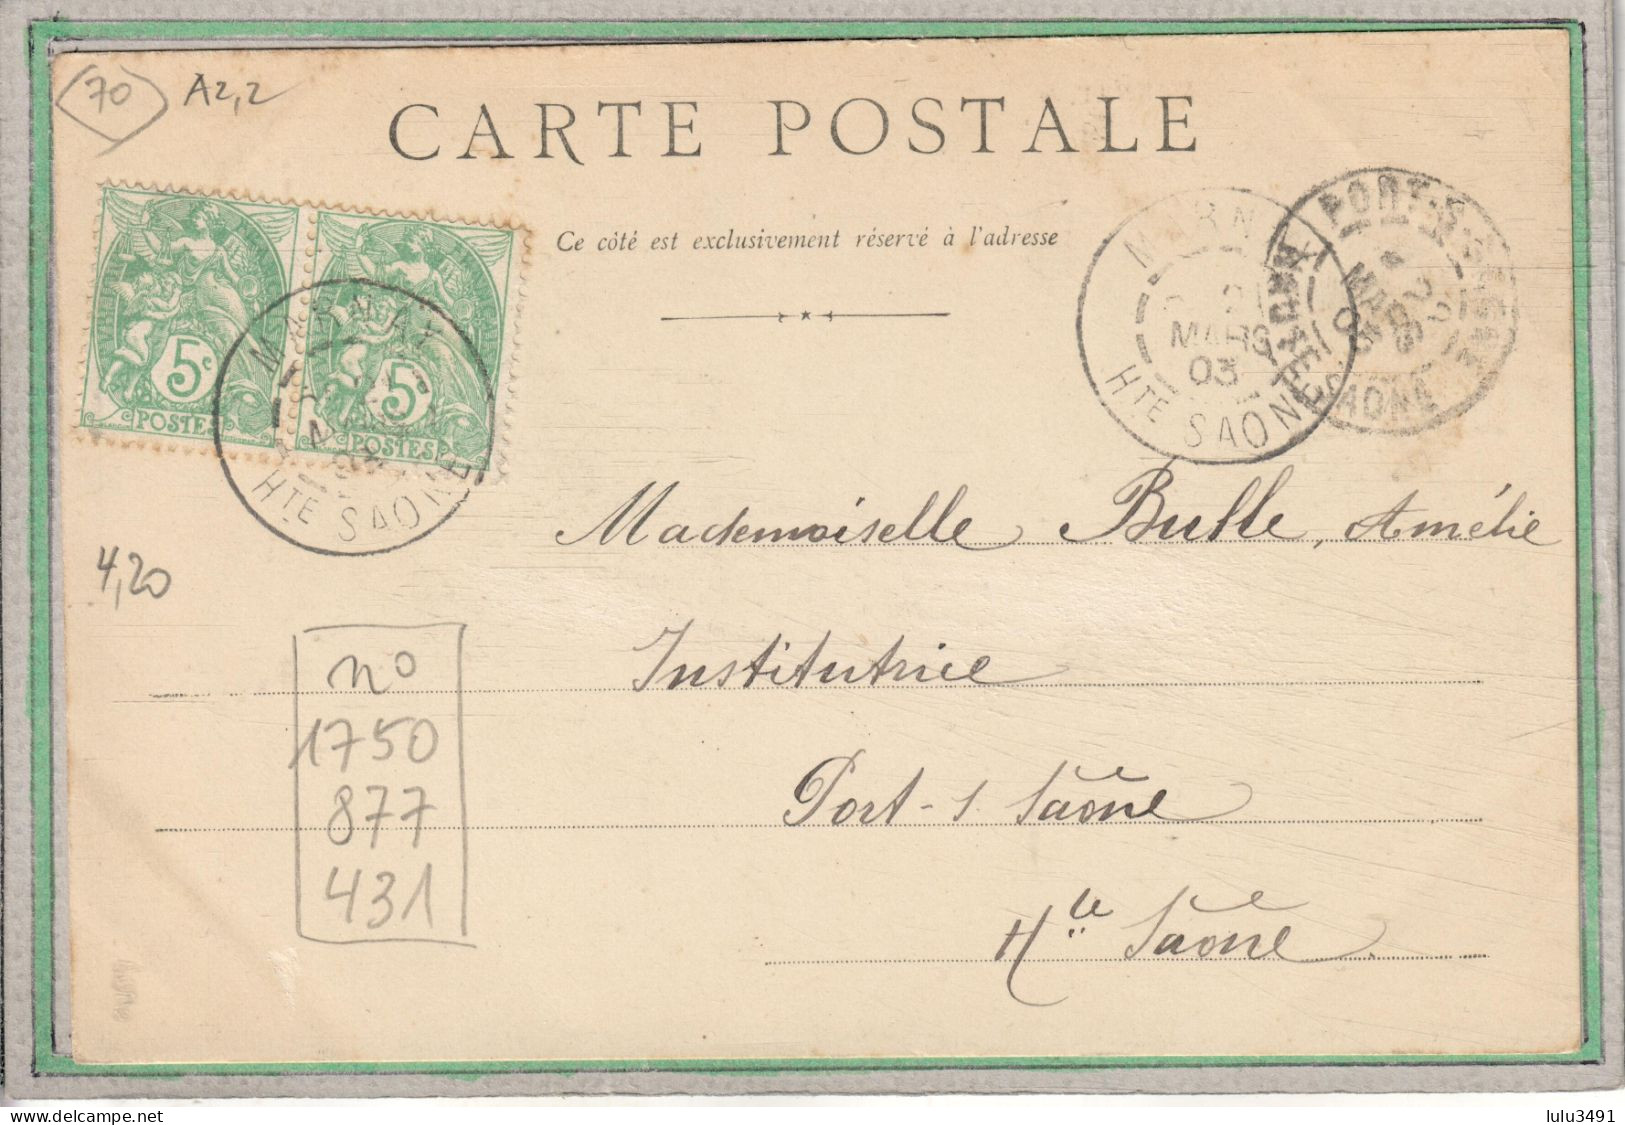 70 A2,2
CARTE POSTALE
Ce côté est exclusivement réservé à l'adresse
5c 5c
POSTES POSTES
MARNAY
HTE SAONE
MARNAY
MARS
03
HTE SAONE
PORT-S-
MARS
03
SAONE
Mademoiselle Bulle, Amélie
4,20
Institutrice
Port-s-Saône
Hte Saône
no
1750
877
431
lulu3491
www.delcampe.net